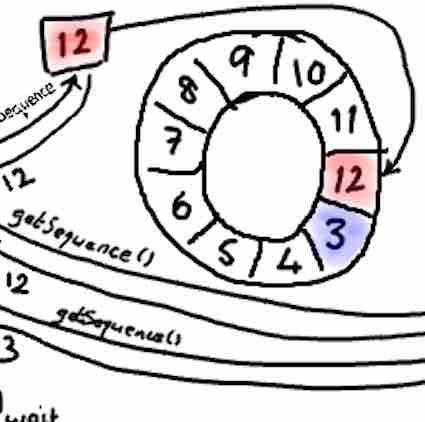 12
sequence
12
9
10
8
11
7
12
6
3
5
4
getSequence()
12
getSequence()
3
wait